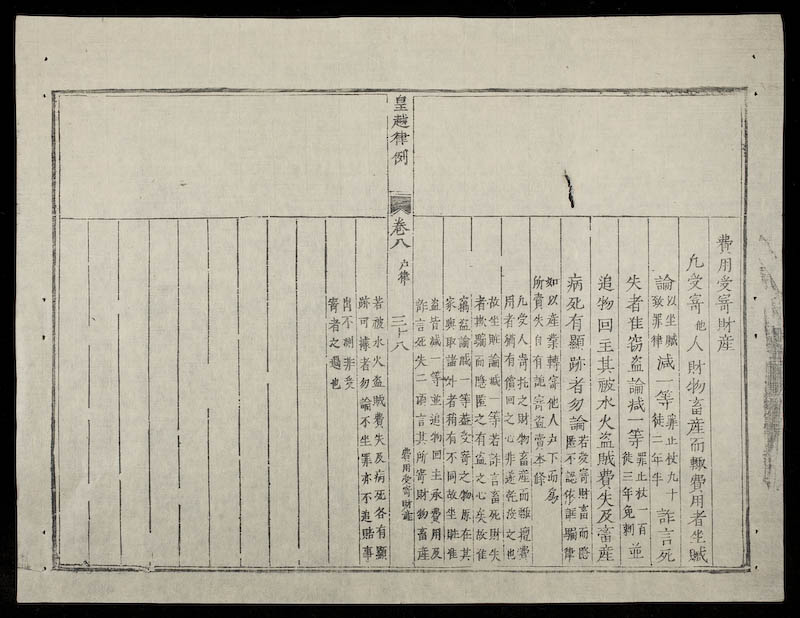 費用受寄財産
凡受寄他人財物畜産而輒費用者坐贓
論以坐贓致罪律減一等罪止杖九十徒二年半詐言死
失者准窃盗論减一等罪止杖一百徒三年免刺並
追物回主其被水火盗賊費失及畜産
病死有顯跡者勿論若受寄財畜而隱匿不認依誆騙律
如以産業轉寄他人戶下而爲
所賣失自有詭寄盗賣本條
凡受人寄托之財物畜産而輒擅費
用者猶有償回之心非遂乾沒之也
故坐賍論減一等若詐言畜死財失
者欺騙而隱匿之有盗之心矣故准
竊盗論減一等蓋受寄之物原在其
家與取諸外者稍有不同故坐賍准
盗皆減一等並追物回主承費用及
詐言死失二項言其所寄財物畜産
皇越律例
卷八
戶律
三十八
費用受寄財産
若被水火盗賊費失及病死各有顯
跡可據者勿論不坐罪亦不追賠事
出不測非受
寄者之過也